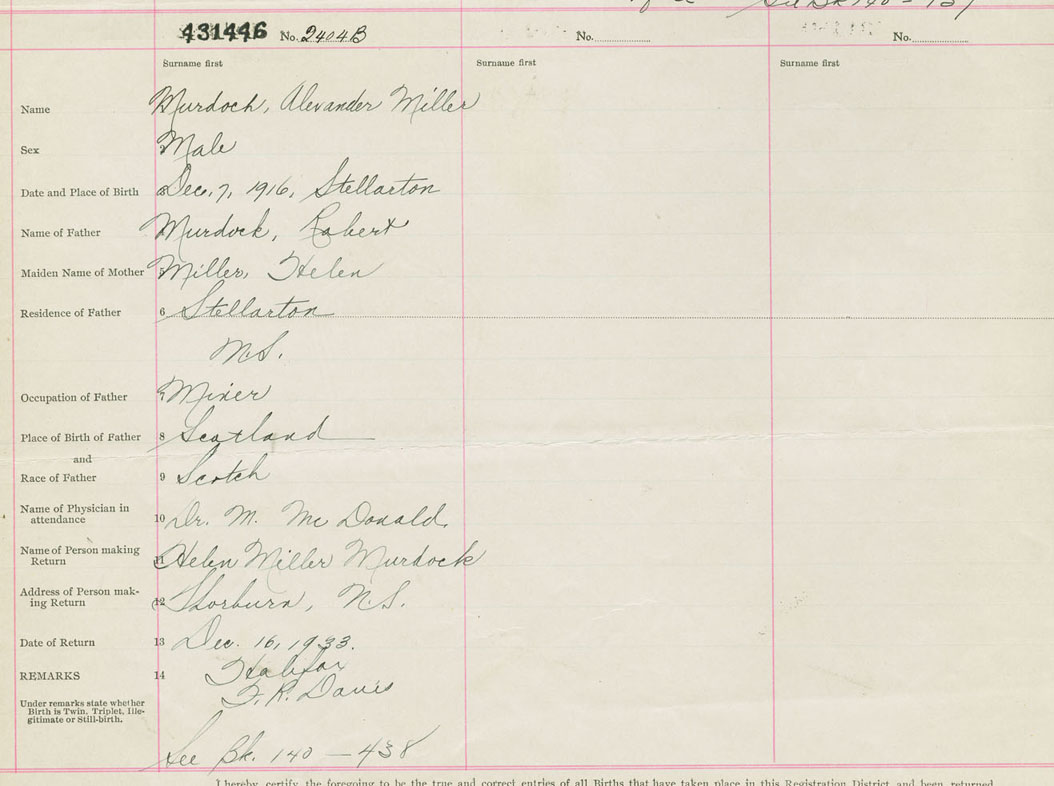 See Bk 140 - 437
431446 No. 2404B No. No.
Surname first Surname first Surname first
Name Murdoch, Alexander Miller
Sex 2 Male
Date and Place of Birth 3 Dec. 7, 1916, Stellarton
Name of Father 4 Murdock, Robert
Maiden Name of Mother 5 Miller, Helen
Residence of Father 6 Stellarton
N.S.
Occupation of Father 7 Miner
Place of Birth of Father 8 Scotland
and
Race of Father 9 Scotch
Name of Physician in
attendance 10 Dr. M. McDonald
Name of Person making
Return 11 Helen Miller Murdock
Address of Person mak-
ing Return 12 Thorburn, N.S.
Date of Return 13 Dec. 16, 1933.
REMARKS 14 Halifax
F. R. Davis
Under remarks state whether
Birth is Twin, Triplet, Ille-
gitimate or Still-birth.
See Bk. 140 — 438
I hereby certify the foregoing to be the true and correct entries of all Births that have taken place in this Registration District and been returned